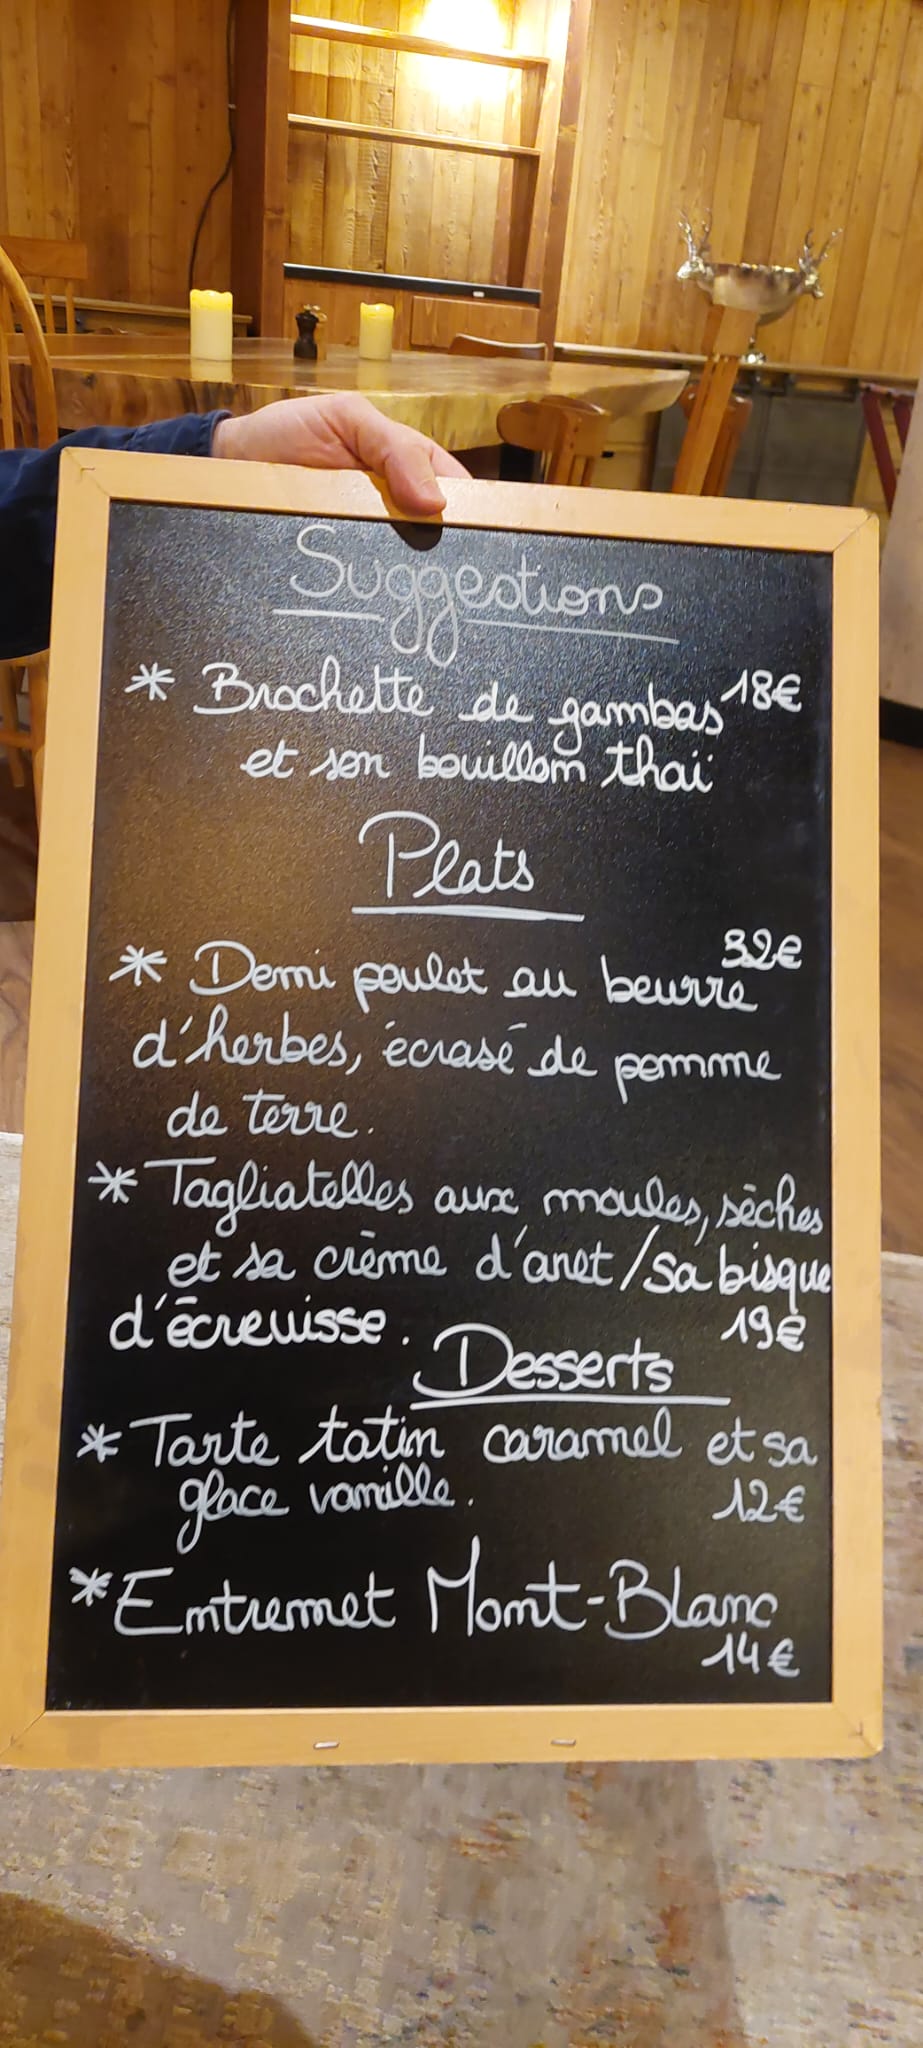 Suggestions
* Brochette de gambas 18€
et son bouillon thaï
Plats
32€
* Demi poulet au beurre
d'herbes, écrasé de pomme
de terre.
* Tagliatelles aux moules, sèches
et sa crème d'anet / sa bisque
d'écrevisse. 19€
Desserts
* Tarte tatin caramel et sa
glace vanille. 12€
* Entremet Mont-Blanc
14€